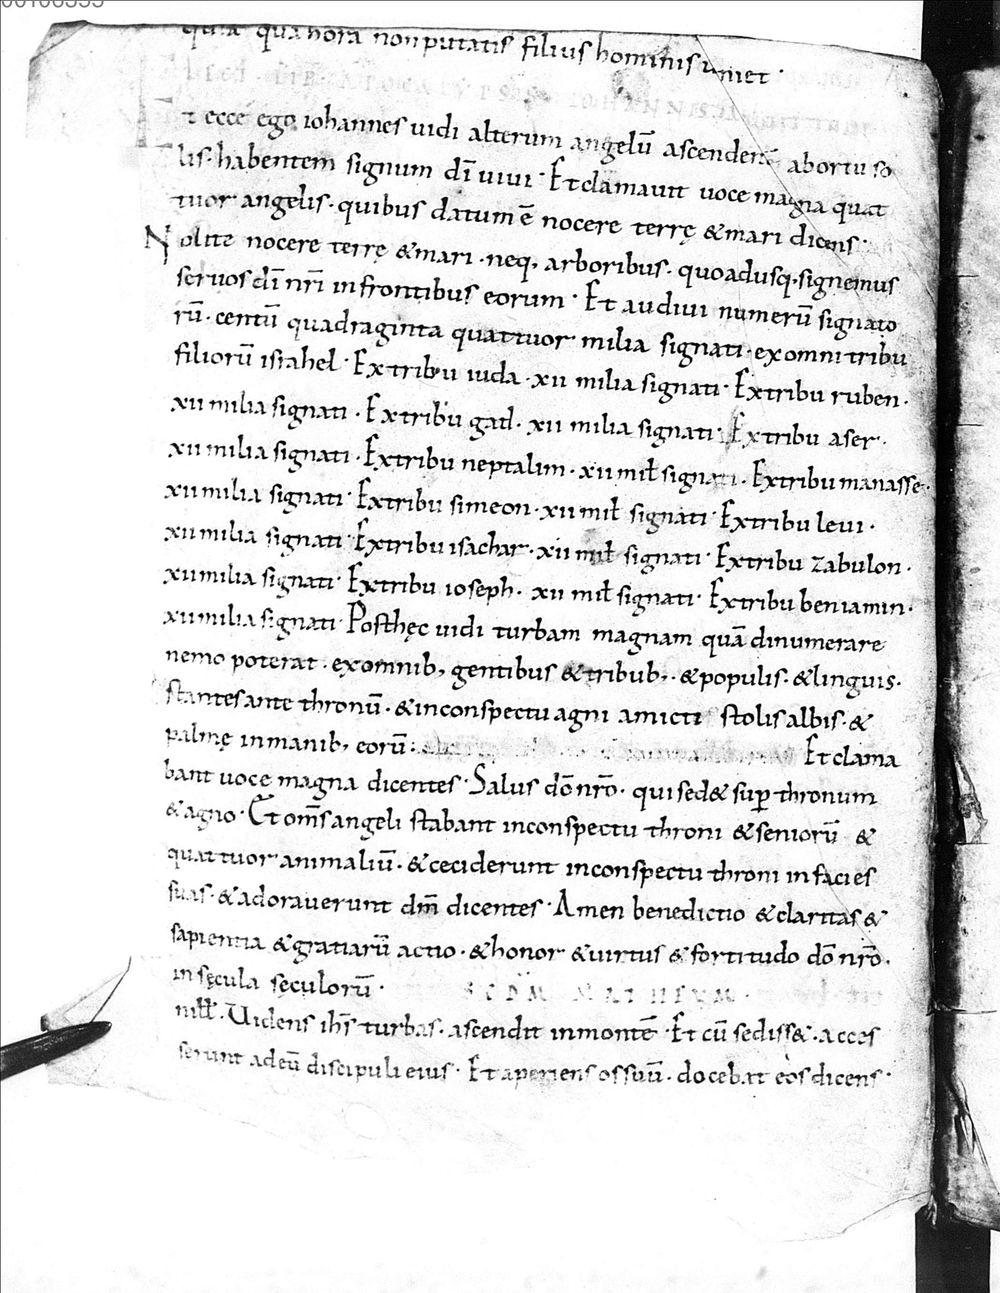 quia qua hora non putatis filius hominis ueniet·
LECT· LIBRI APOCALYPSIS IOHANNIS
Et ecce ego iohannes uidi alterum angelū ascendentē abortu so
lis· habentem signum dī uiui· Et clamauit uoce magna quat
tuor angelis· quibus datum ē nocere terrę & mari dicens·
Nolite nocere terrę & mari· neq, arboribus· quoadusq, signemus
seruos dī nrī in frontibus eorum· Et audiui numerū signato
rū· centū quadraginta quattuor milia signati· ex omni tribu
filiorū israhel· Ex tribu iuda· xii milia signati· Ex tribu ruben·
xii milia signati· Ex tribu gad· xii milia signati· Ex tribu aser·
xii milia signati· Ex tribu neptalim· xii mił signati· Ex tribu manasse·
xii milia signati· Ex tribu simeon· xii mił signati· Ex tribu leui·
xii milia signati· Ex tribu isachar· xii mił signati· Ex tribu zabulon·
xii milia signati· Ex tribu ioseph· xii mił signati· Ex tribu beniamin·
xii milia signati· Post hęc uidi turbam magnam quā dinumerare
nemo poterat· ex omnib, gentibus & tribub,· & populis· & linguis·
stantes ante thronū· & in conspectu agni amicti stolis albis· &
palmę in manib, eorū· Et clama
bant uoce magna dicentes· Salus dō nrō· qui sed& sup thronum
& agno· Et oms angeli stabant in conspectu throni & seniorū &
quattuor animaliū· & ceciderunt in conspectu throni in facies
suas· & adorauerunt dm̄ dicentes· Amen benedictio & claritas &
sapientia & gratiarū actio· & honor & uirtus & fortitudo dō nrō·
in sęcula sęculorū· SCDM MATHEVM·
nill̄· Uidens ihs̄ turbas· ascendit in montē· Et cū sediss&· acces
serunt ad eū discipuli eius· Et aperiens os suū· docebat eos dicens·